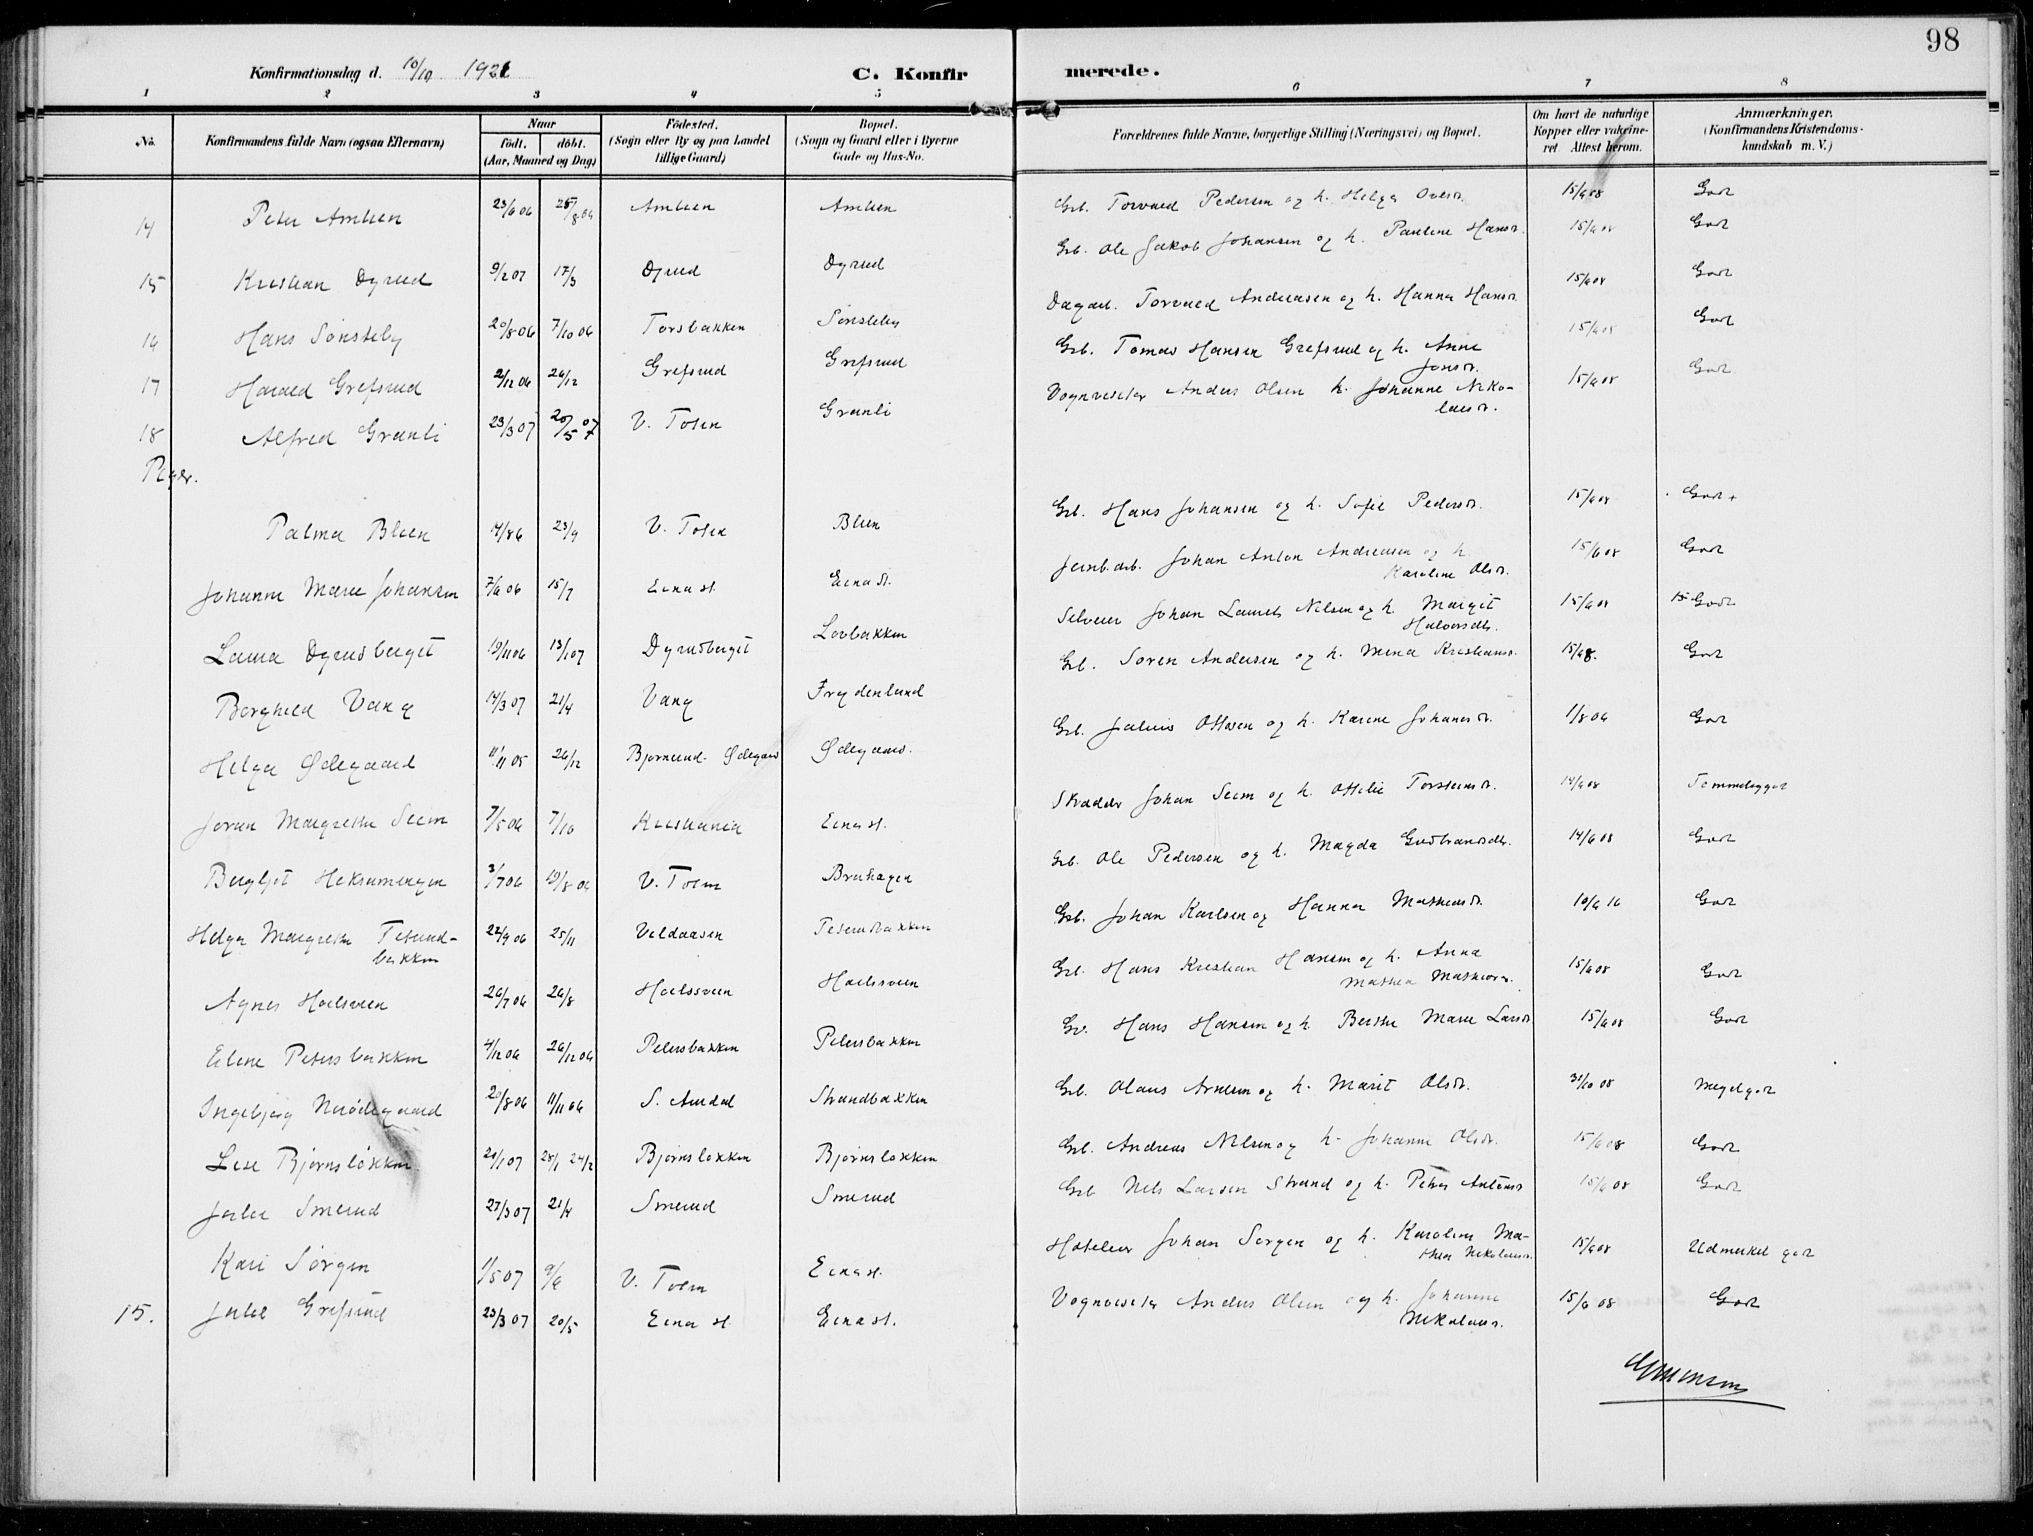 98
Konfirmationsdag d. 10/10 1921 C. Konfirmerede.
1 2 3 4 5 6 7 8
No. Konfirmandens fulde Navn (ogsaa Efternavn) Naar født. døbt. (Aar, Maaned og Dag) Fødested. (Sogn eller By og paa Landet tillige Gaard) Bopæl. (Sogn og Gaard eller i Byerne Gade og Hus-No. Forældrenes fulde Navne, borgerlige Stilling (Næringsvei) og Bopæl. Om havt de naturlige Kopper eller vakcineret Attest herom. Anmærkninger. (Konfirmandens Kristendomskundskab m. V.)
14 Peter Amlien 23/6 06 8 06 Amlien Amlien Grb. Torvald Pedersen og h. Helga 15/6 08 Godt
15 Kristian Dyrud 9/2 07 17/3 Dyrud Dyrud Grb. Ole Jakob Johansen og h. Pauline Hansd. 15/6 08 Godt
16 Hans Sønsteby 20/8 06 7/10 06 Torsbakken Sønsteby Dagarb. Torvald Andreasen og h. Hanna Hansd. 15/6 08 Godt
17 Harald Grefsrud 2/12 06 26/12 Grefsrud Grefsrud Grb. Tomas Hansen Grefsrud og h. Anne Jonsd. 15/6 08 Godt
18 Alfred Granli 23/3 07 20/5 07 V. Toten Granli Vognvisiter Anders Olsen h. Johanne Nikolaisd. 15/6 08 Godt
Piger.
Palma Blien 23/9 V. Toten Blien Grb. Hans Johansen og h. Sofie Pedersd. 15/6 08 Godt +
Johanne Marie Johansen 7/6 06 15/7 Eina st. Eina st. Jernb.arb. Johan Anton Andreasen og h. Karoline Olsd. 15/6 08 Godt
Laura Dyrudsberget 19/11 06 13/1 07 Dyrudsberget Lovbakken Selveier Johan Laurits Nilsen og h. Margit Halvorsdtr. 15/6 08 Godt
Borghild Vang 14/3 07 21/4 Vang Frydenlund Grb. Søren Andersen og h. Mina Kristiansd. 15/6 8. Godt
Helga Ødegaard 11/11 05 26/12 Bjørnerud-Ødegaard Ødegaard. Grb. Julius Ottosen og h. Karene Johansd. 1/8 06 Godt
Joran Margrethe Seim 7/5 06 7/10 Kristiania Eina st. Skrædder Johan Seim og h. Ottilie Torsteinsd. 14/6 08 Temmelig godt
Bergljot Heksumengen 3/7 06 19/8 06 V. Toten Brenhagen Grb. Ole Pedersen og h. Magda Gudbrandsdtr. 14/6 08 Godt
Helga Margrethe Teterudbakken 22/9 06 25/11 Vildaasen Teterudbakken Grb. Johan Karlsen og Hanna Mathiasd. 10/6 16 Godt
Agnes Holssveen 26/7 06 26/8 Holssveen Holssveen Grb. Hans Kristian Hansen og h. Anna Mathea Mathiasd. 15/6 08 Godt
Eline Petersbakken 4/12 06 26/12 06 Petersbakken Petersbakken Grb. Hans Hansen og h. Berthe Marie Larsd. 15/6 08 Godt
Ingebjørg Nerødegaard 20/8 06 11/11 06 S. Aurdal Strandbakken Grb. Olaus Arnesen og h. Marit Olsd. 31/10 08 Meget godt
Lise Bjørnsløkken 21/1 07 24/2 Bjørnsløkken Bjørnsløkken Grb. Andreas Nilsen og h. Johanne Olsd. 15/6 08 Godt
Julie Smerud 27/3 07 21/4 Smerud Smerud Grb Nils Larsen Strand og h. Petra Antonsd. 15/6 08 Godt
Kari Sørgen 1/5 07 9/6 V. Toten Eina st. Hoteleier Johan Sørgen og h. Karoline Mathea Nikolaisd. 15/6 08 Udmerket godt
15. Julie Grefsrud 23/3 07 20/5 Eina st. Eina st. Vognvisiter Anders Olsen og h. Johanne Nikolaisd. 15/6 08 Godt